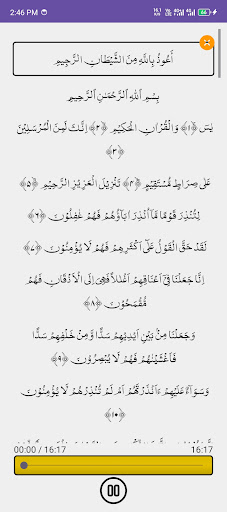 2:46 PM
أَعُوذُ بِاللَّهِ مِنَ الشَّيْطَانِ الرَّجِيمِ
بِسْمِ اللَّهِ الرَّحْمَٰنِ الرَّحِيمِ
يٰسٓ ﴿١﴾ وَالْقُرْاٰنِ الْحَكِيْمِ ﴿٢﴾ اِنَّكَ لَمِنَ الْمُرْسَلِيْنَ
﴿٣﴾
عَلٰى صِرَاطٍ مُّسْتَقِيْمٍ ﴿٤﴾ تَنْزِيْلَ الْعَزِيْزِ الرَّحِيْمِ ﴿٥﴾
لِتُنْذِرَ قَوْمًا مَّاۤ اُنْذِرَ اٰبَآؤُهُمْ فَهُمْ غٰفِلُوْنَ ﴿٦﴾
لَقَدْ حَقَّ الْقَوْلُ عَلٰٓى اَكْثَرِهِمْ فَهُمْ لَا يُؤْمِنُوْنَ ﴿٧﴾
اِنَّا جَعَلْنَا فِيْٓ اَعْنَاقِهِمْ اَغْلٰلًا فَهِيَ اِلَى الْاَذْقَانِ فَهُمْ
مُّقْمَحُوْنَ ﴿٨﴾
وَجَعَلْنَا مِنْۢ بَيْنِ اَيْدِيْهِمْ سَدًّا وَّمِنْ خَلْفِهِمْ سَدًّا
فَاَغْشَيْنٰهُمْ فَهُمْ لَا يُبْصِرُوْنَ ﴿٩﴾
وَسَوَآءٌ عَلَيْهِمْ ءَاَنْذَرْتَهُمْ اَمْ لَمْ تُنْذِرْهُمْ لَا يُؤْمِنُوْنَ
﴿١٠﴾
00:00 / 16:17
16:17